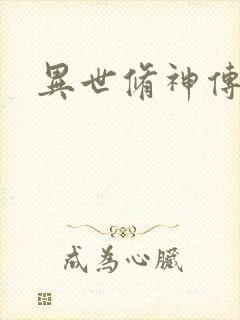 異世脩神傳
成為心臟